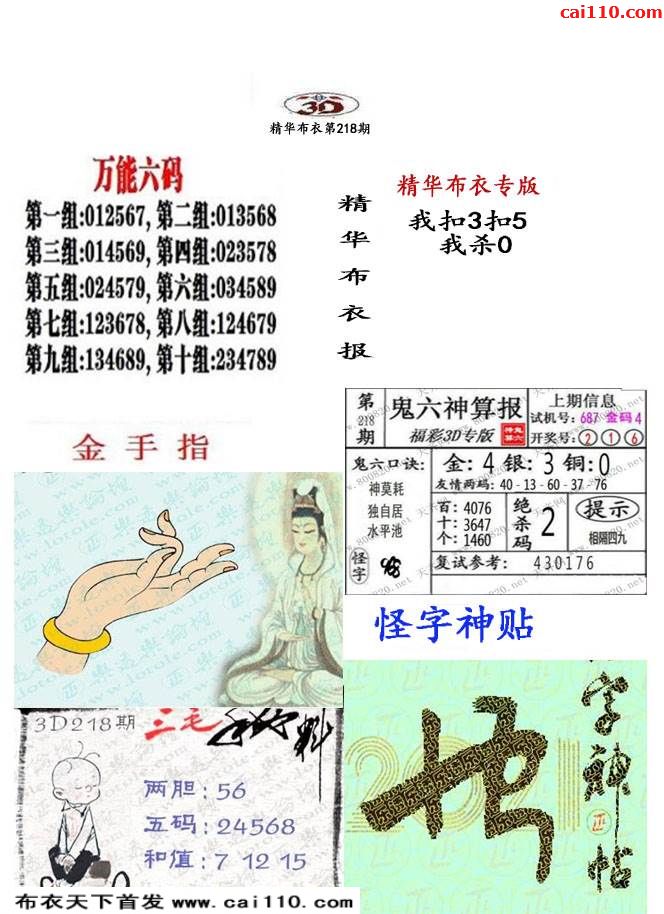 cai110.com
3D
精华布衣第218期
万能六码
第一组:012567, 第二组:013568
第三组:014569, 第四组:023578
第五组:024579, 第六组:034589
第七组:123678, 第八组:124679
第九组:134689, 第十组:234789
精华布衣报
精华布衣专版
我扣3扣5
我杀0
金手指
第218期
鬼六神算报
福彩3D专版
上期信息
试机号: 687 金码 4
开奖号: 2 1 6
鬼六口诀:
神莫耗
独自居
水平池
怪字
金: 4 银: 3 铜: 0
友情两码: 40-13-60-37-76
百: 4076
十: 3647
个: 1460
绝杀码 2
提示
相隔四九
复试参考: 430176
怪字神贴
字神帖
3D218期 三毛
两胆: 56
五码: 24568
和值: 7 12 15
布衣天下首发 www.cai110.com